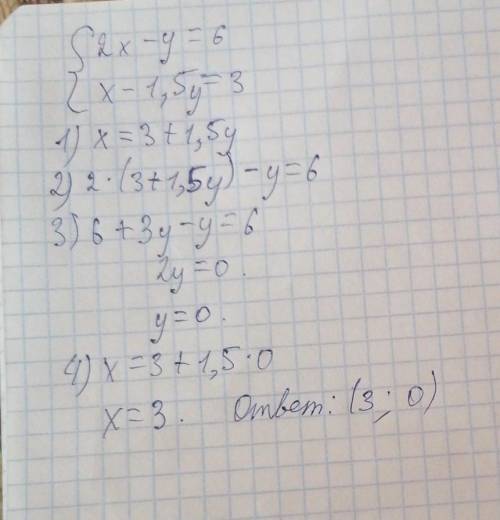 { 2x - y = 6
x - 1,5y = 3
1) x = 3 + 1,5y
2) 2 · (3 + 1,5y) - y = 6
3) 6 + 3y - y = 6
2y = 0.
y = 0.
4) x = 3 + 1,5 · 0
x = 3. Ответ: (3; 0)